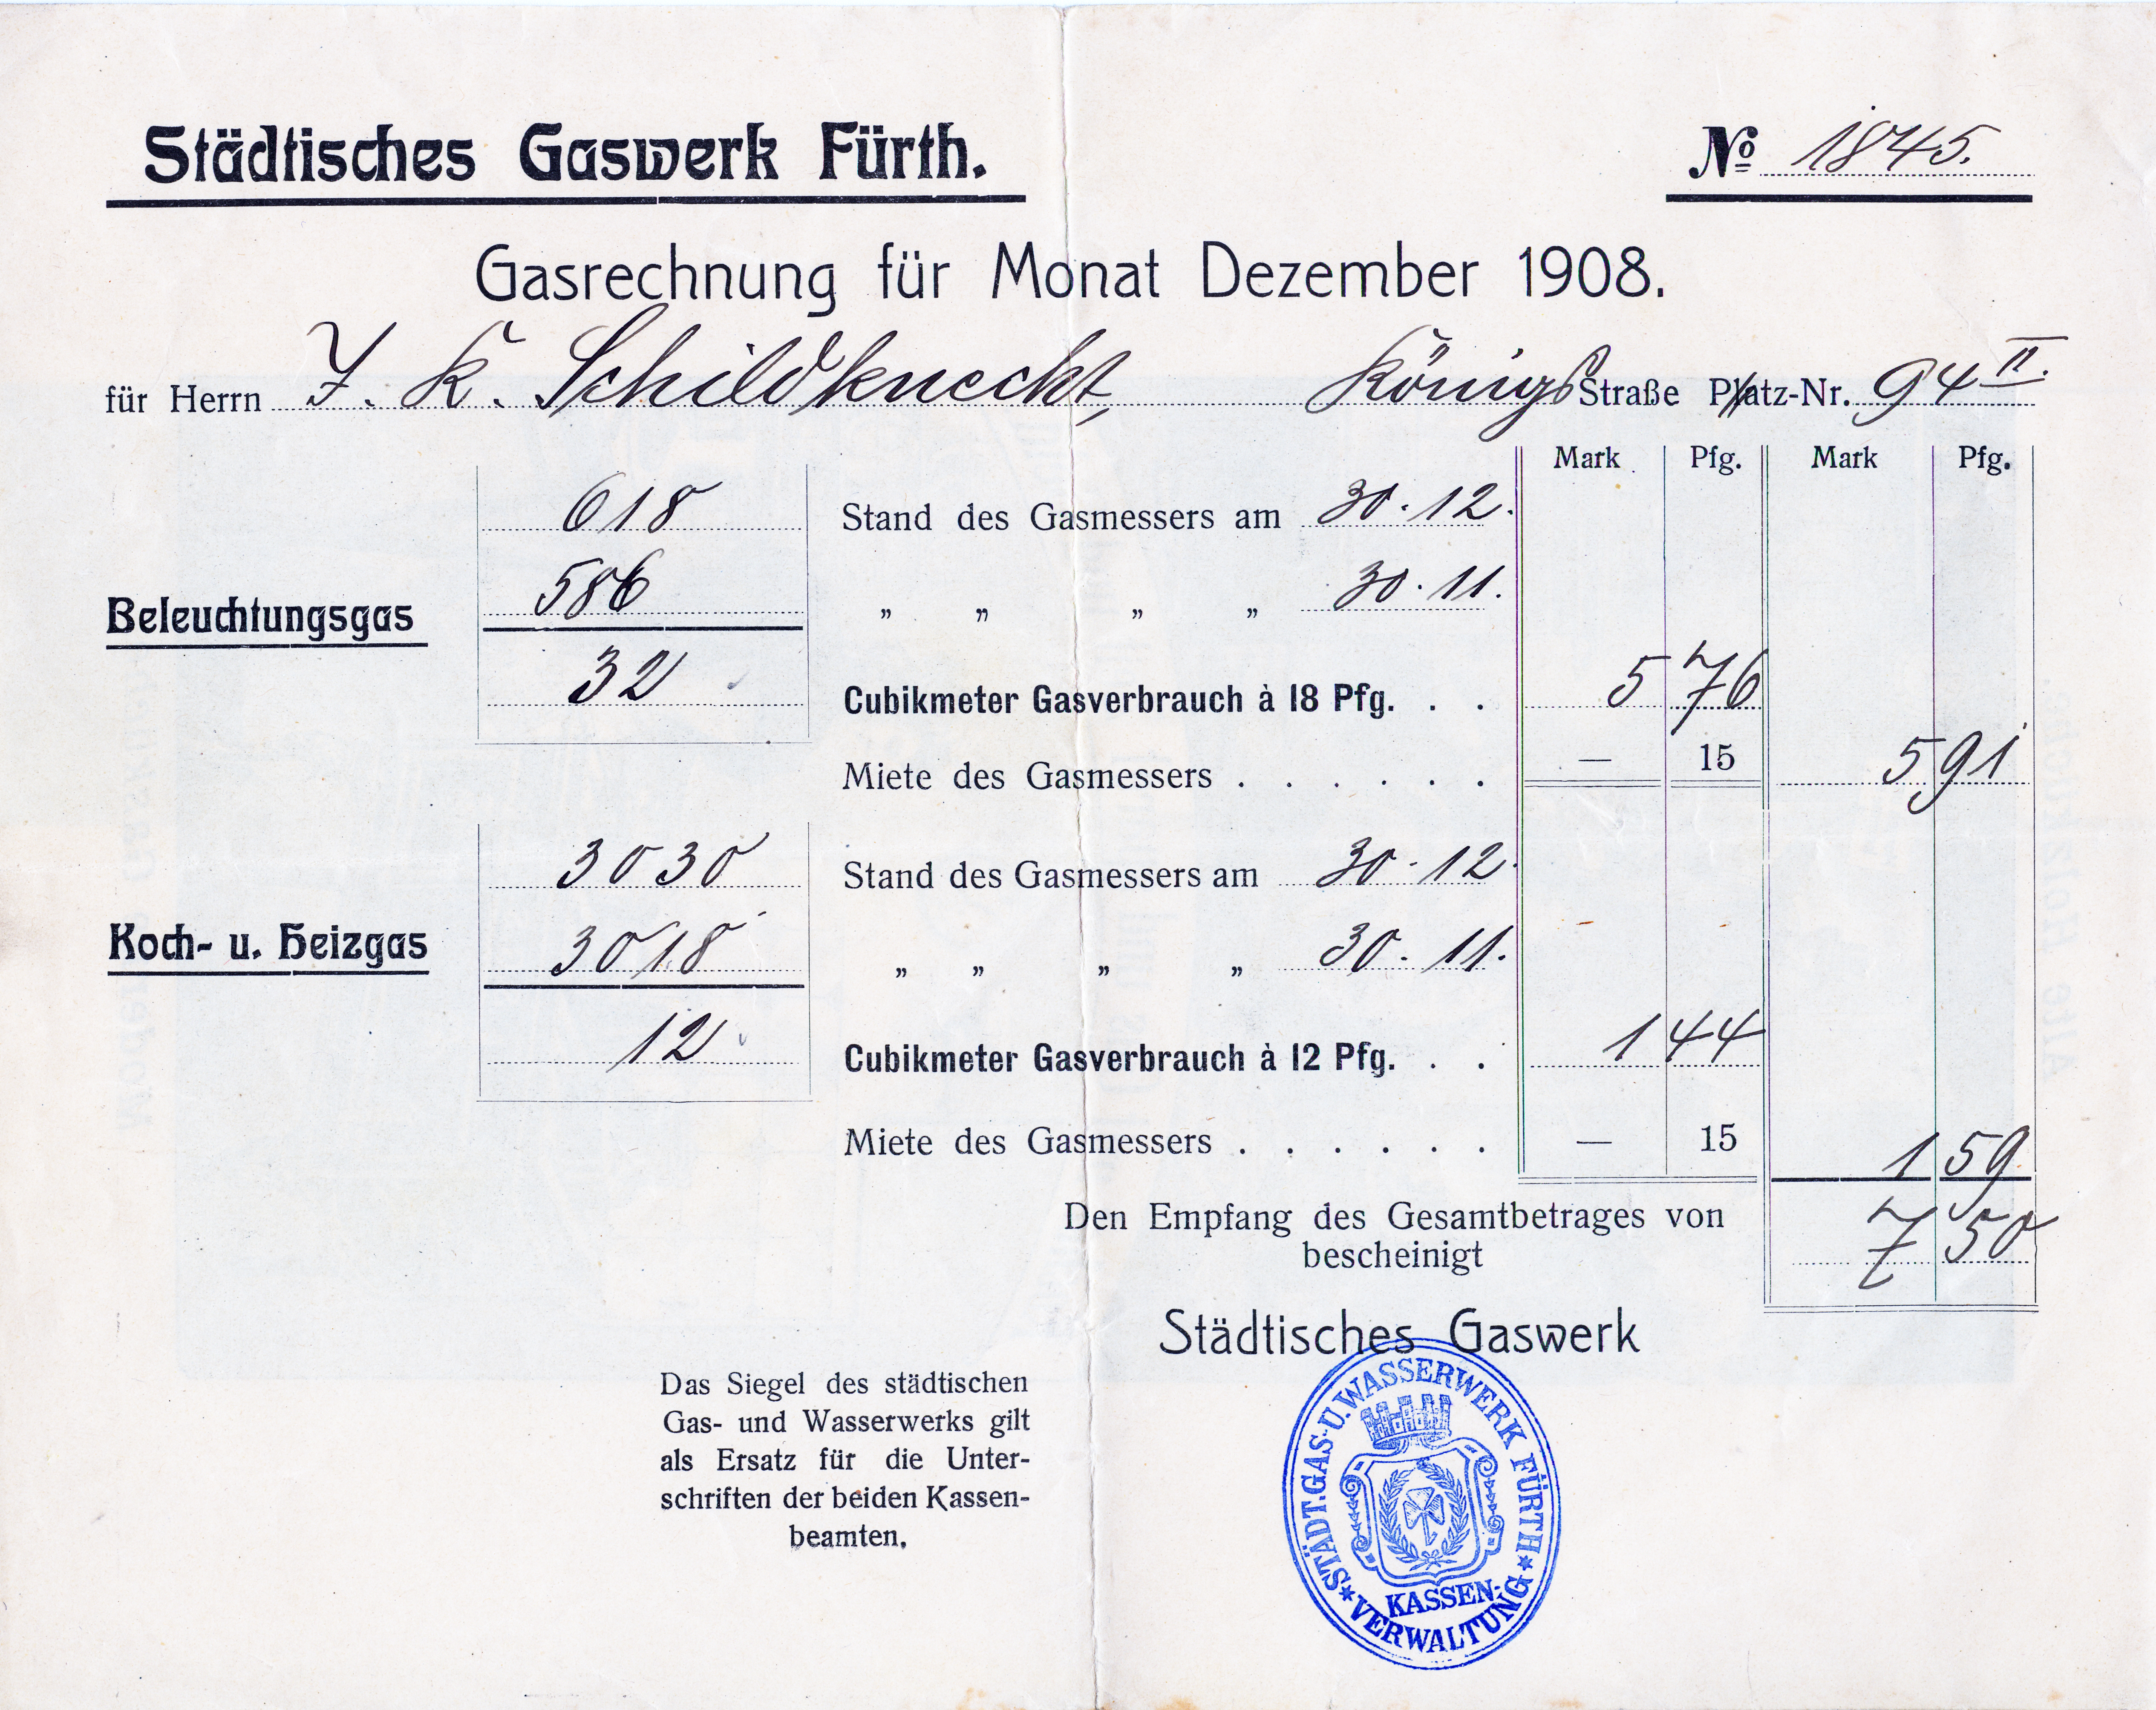 Städtisches Gaswerk Fürth.
No 1845.
Gasrechnung für Monat Dezember 1908.
für Herrn J. K. Schildknecht, Königs Straße Platz-Nr. 94 II.
Mark Pfg. Mark Pfg.
618 Stand des Gasmessers am 30.12.
Beleuchtungsgas 586 „ „ „ „ 30.11.
32 Cubikmeter Gasverbrauch à 18 Pfg. . . 5 76
Miete des Gasmessers . . . . . . — 15 5 91
3030 Stand des Gasmessers am 30.12.
Koch- u. Heizgas 3018 „ „ „ „ 30.11.
12 Cubikmeter Gasverbrauch à 12 Pfg. . . 1 44
Miete des Gasmessers . . . . . . — 15 1 59
Den Empfang des Gesamtbetrages von 7 50
bescheinigt
Städtisches Gaswerk
Das Siegel des städtischen
Gas- und Wasserwerks gilt
als Ersatz für die Unter-
schriften der beiden Kassen-
beamten.
STÄDT.GAS-U.WASSERWERK FÜRTH
KASSEN-
VERWALTUNG